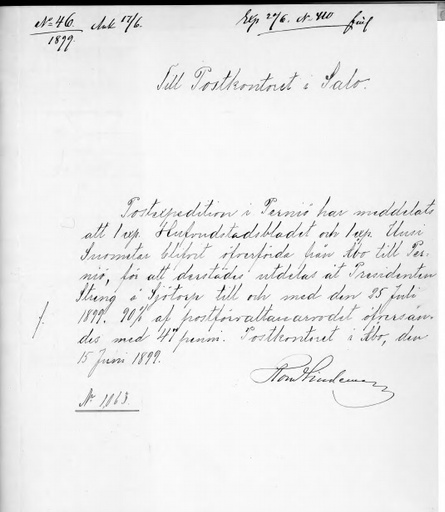 No 46. Ank 17/6. Exp 27/6. No 420
1899.
Till Postkontoret i Salo.
Postexpedition i Perniö har meddelats
att 1 exp. Hufvudstadsbladet och 1 exp. Uusi
Suometar blifvit öfverförda från Åbo till Per-
niö, för att derstädes utdelas åt Presidenten
Streng å Sjötorp till och med den 25 Juli
1899. 20% af postförvaltararvodet öfversän-
des med 47 penni. Postkontoret i Åbo, den
15 Juni 1899.
No 1,063.